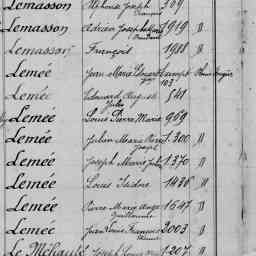 Lemasson Alphonse Joseph 309
François
Lemasson Adrien Joseph 1919 "
Lemasson François 1988 "
Lemée Jean Marie
103
Lemée Edouard Auguste 541 "
Jules
Lemée Louis Pierre Marie 969 "
Lemée Julien Marie Pierre 1.300 "
Joseph
Lemée Joseph Marie Jules 1.370 "
Lemée Louis Isidore 1436 "
Lemée Pierre Marie Ange 1647 "
Guillaume
Lemée Jean Louis François 2003 "
Le Méhauté Joseph 1.207 "